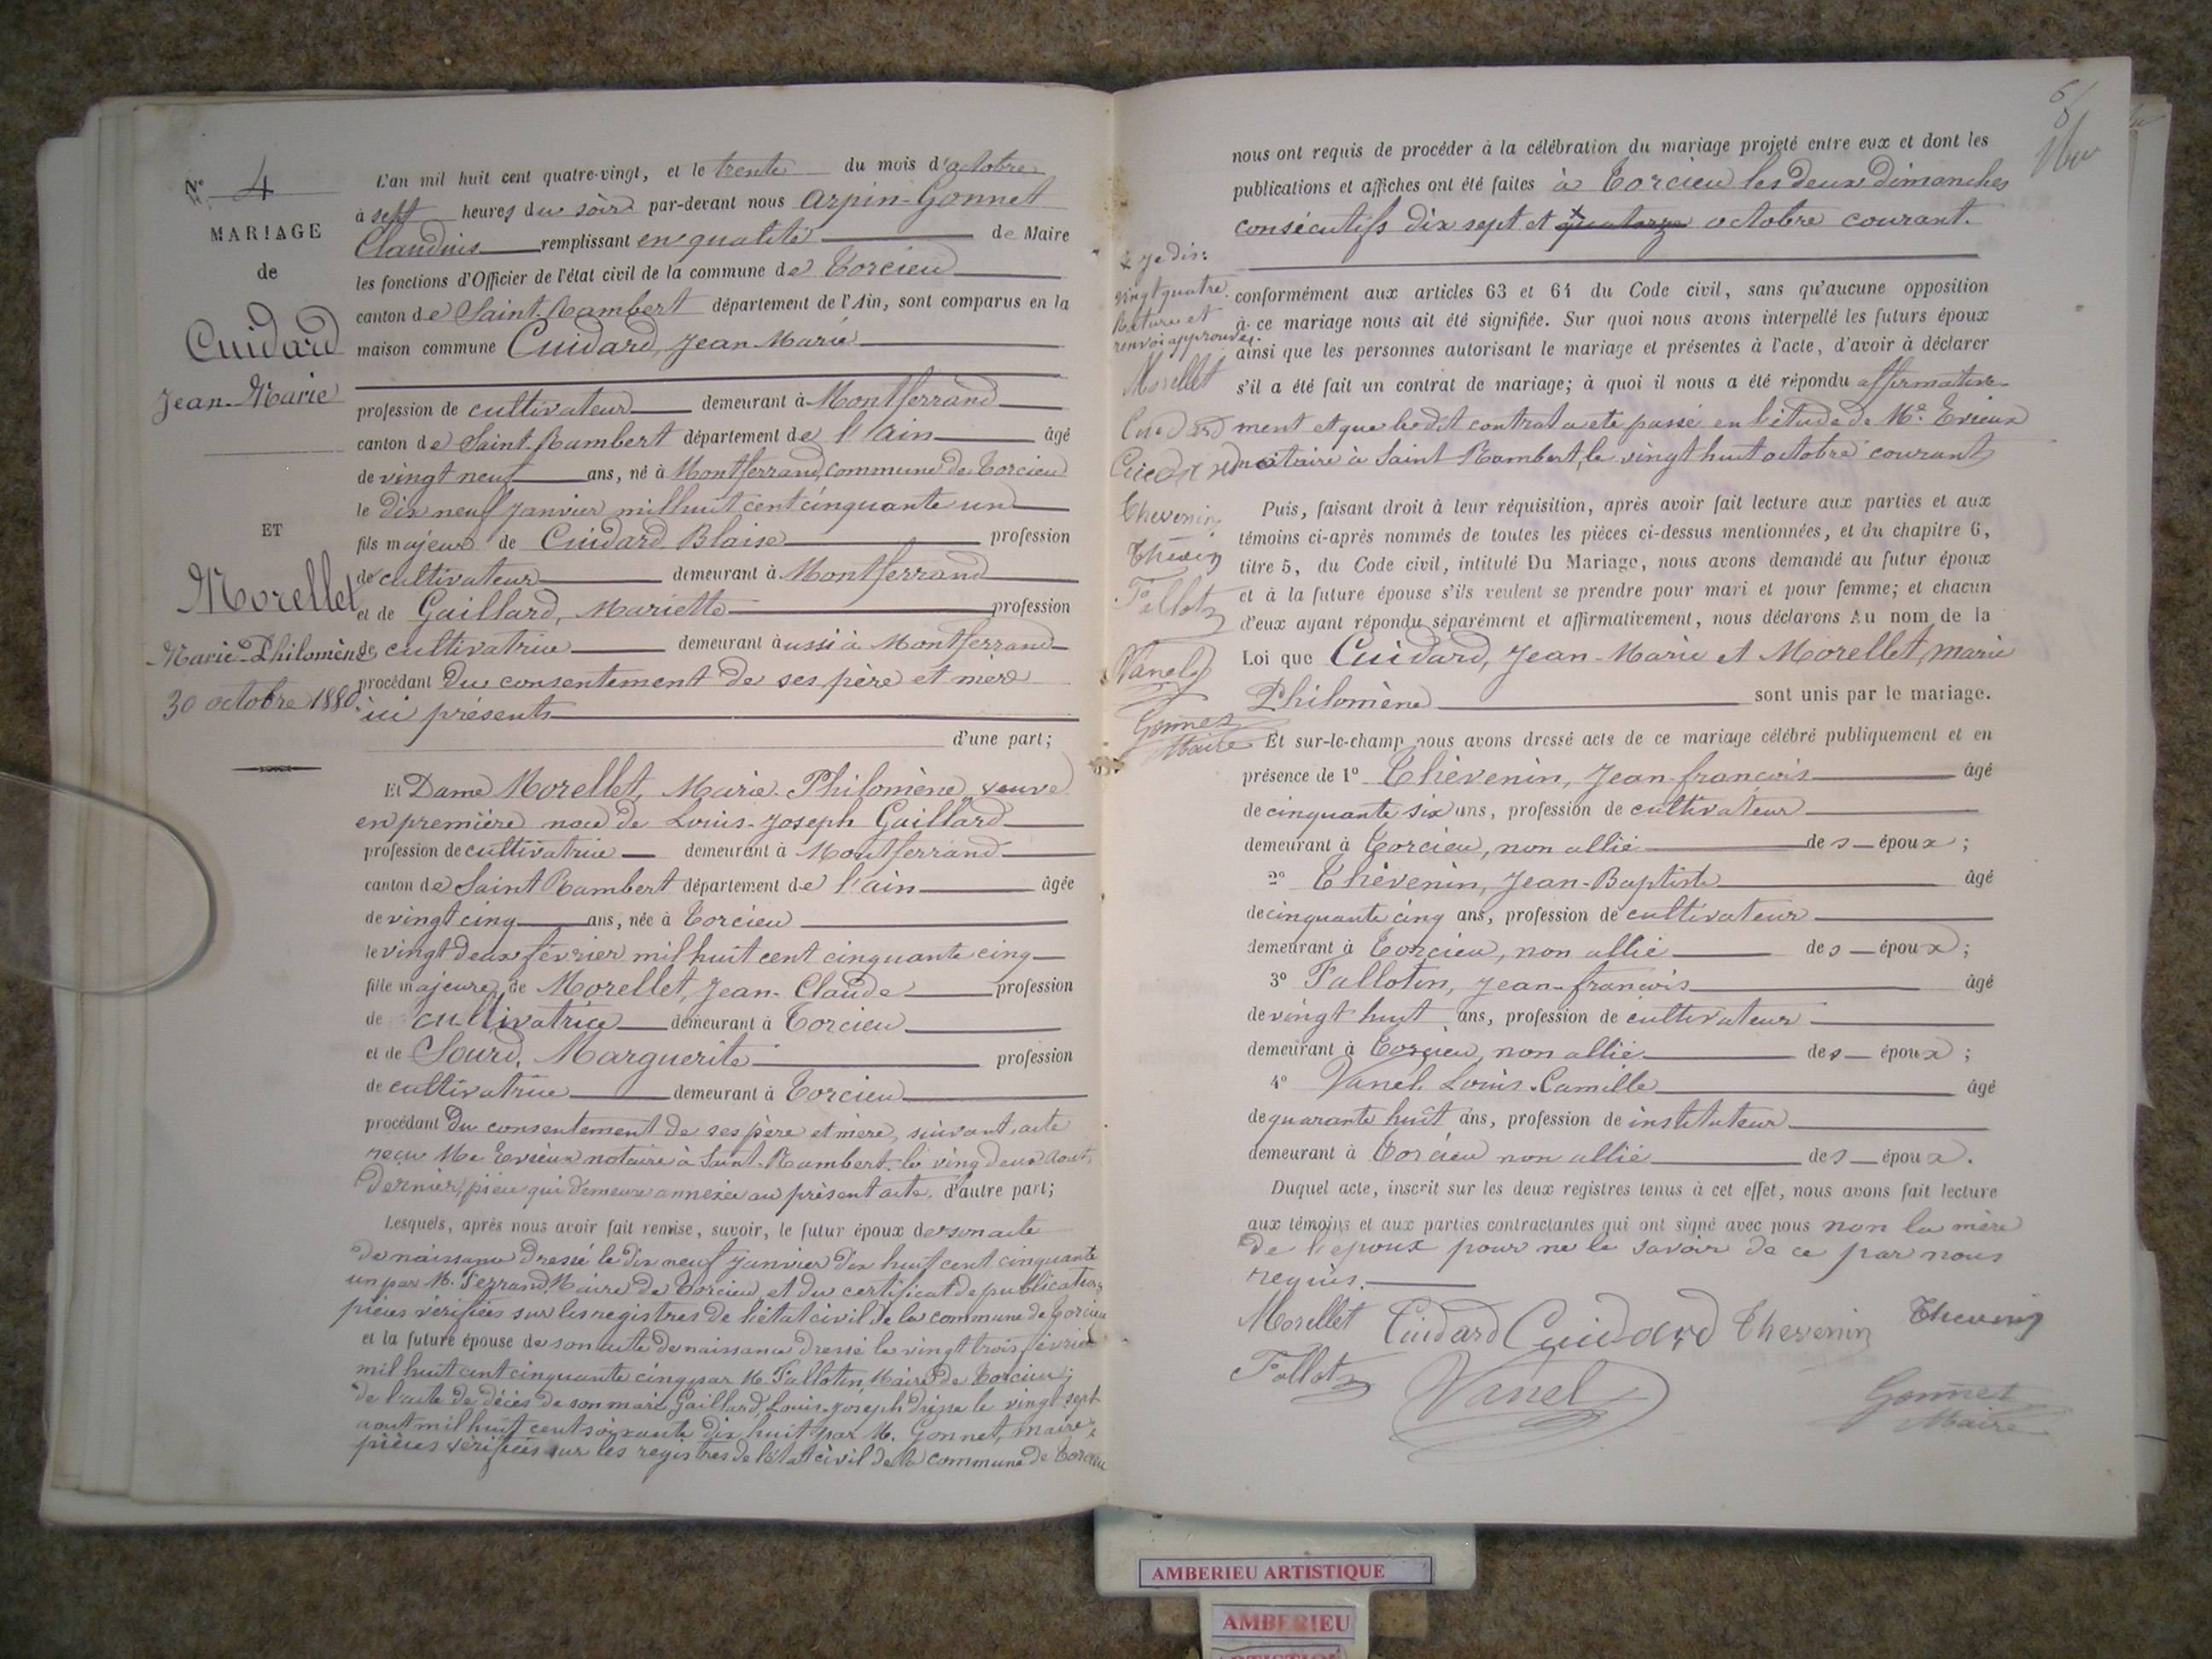 Nº 4
MARIAGE
de
Cuidard
Jean-Marie
ET
Morellet
Marie-Philomène
30 octobre 1880.
L'an mil huit cent quatre-vingt, et le trente du mois d'octobre
à sept heures du soir par-devant nous Arpin-Gonnet
Claudius remplissant en qualité de Maire
les fonctions d'Officier de l'état civil de la commune de Torcieu
canton de Saint-Rambert département de l'Ain, sont comparus en la
maison commune Cuidard, Jean-Marie
profession de cultivateur demeurant à Montferrand
canton de Saint-Rambert département de l'ain âgé
de vingt neuf ans, né à Montferrand, commune de Torcieu
le dix neuf janvier mil huit cent cinquante un
fils majeur de Cuidard Blaise profession
de cultivateur demeurant à Montferrand
et de Gaillard, Mariette profession
de cultivatrice demeurant aussi à Montferrand
procédant du consentement de ses père et mère
ici présents
d'une part;
Et Dame Morellet, Marie-Philomène, veuve
en première noce de Louis-Joseph Gaillard
profession de cultivatrice demeurant à Montferrand
canton de Saint Rambert département de l'ain âgée
de vingt cinq ans, née à Torcieu
le vingt deux février mil huit cent cinquante cinq
fille majeure de Morellet, Jean-Claude profession
de cultivatrice demeurant à Torcieu
et de Sourd, Marguerite profession
de cultivatrice demeurant à Torcieu
procédant du consentement de ses père et mère, suivant acte
reçu Me Evieux notaire à Saint-Rambert, le ving deux Aout
dernier, pièce qui demeure annexée au présent acte, d'autre part;
Lesquels, après nous avoir fait remise, savoir, le futur époux de son acte
de naissance dressé le dix neuf janvier dix huit cent cinquante
un par M. Ferrand Maire de Torcieu, et du certificat de publications
pièces vérifiées sur les registres de l'état civil de la commune de Torcieu
et la future épouse de son acte de naissance dressé le vingt trois février
mil huit cent cinquante cinq par M. Fallotin, Maire de Torcieu;
de l'acte de décès de son mari Gaillard, Louis-Joseph dressé le vingt sept
aout mil huit cent soixante dix huit par M. Gonnet, maire,
pièces vérifiées sur les registres de l'état civil de la commune de Torcieu
nous ont requis de procéder à la célébration du mariage projeté entre eux et dont les
publications et affiches ont été faites à Torcieu les deux dimanches
consécutifs dix sept et quatorze octobre courant.
x je dis:
vingt quatre.
Rature et
renvoi approuvés.
Morellet
Cuidard
Cuidard
Thevenin
Thevenin
Fallotin
Vanel
Gonnet
Maire
conformément aux articles 63 et 64 du Code civil, sans qu'aucune opposition
à ce mariage nous ait été signifiée. Sur quoi nous avons interpellé les futurs époux
ainsi que les personnes autorisant le mariage et présentes à l'acte, d'avoir à déclarer
s'il a été fait un contrat de mariage; à quoi il nous a été répondu affirmative-
ment et que le dit contrat a été passé en l'étude de Me. Evieux
notaire à Saint Rambert, le vingt huit octobre courant
Puis, faisant droit à leur réquisition, après avoir fait lecture aux parties et aux
témoins ci-après nommés de toutes les pièces ci-dessus mentionnées, et du chapitre 6,
titre 5, du Code civil, intitulé Du Mariage, nous avons demandé au futur époux
et à la future épouse s'ils veulent se prendre pour mari et pour femme; et chacun
d'eux ayant répondu séparément et affirmativement, nous déclarons Au nom de la
Loi que Cuidard, Jean-Marie et Morellet, Marie
Philomène sont unis par le mariage.
Et sur-le-champ nous avons dressé acte de ce mariage célébré publiquement et en
présence de 1º Thévenin, Jean-françois âgé
de cinquante six ans, profession de cultivateur
demeurant à Torcieu, non allié des époux;
2º Thévenin, Jean-Baptiste âgé
de cinquante cinq ans, profession de cultivateur
demeurant à Torcieu, non allié des époux;
3º Fallotin, Jean-françois âgé
de vingt huit ans, profession de cultivateur
demeurant à Torcieu, non allié des époux;
4º Vanel, Louis-Camille âgé
de quarante huit ans, profession de instituteur
demeurant à Torcieu non allié des époux.
Duquel acte, inscrit sur les deux registres tenus à cet effet, nous avons fait lecture
aux témoins et aux parties contractantes qui ont signé avec nous non la mère
de l'époux pour ne le savoir de ce par nous
requis.
Morellet Cuidard Cuidard Thevenin Thevenin
Fallotin Vanel Gonnet
Maire
AMBERIEU ARTISTIQUE
AMBERIEU
ARTISTIQUE